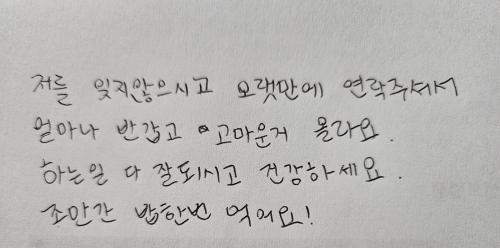 저를 잊지않으시고 오랫만에 연락주셔서
얼마나 반갑고 고마운거 몰라요.
하는일 다 잘되시고 건강하세요.
조만간 밥한번 먹어요!